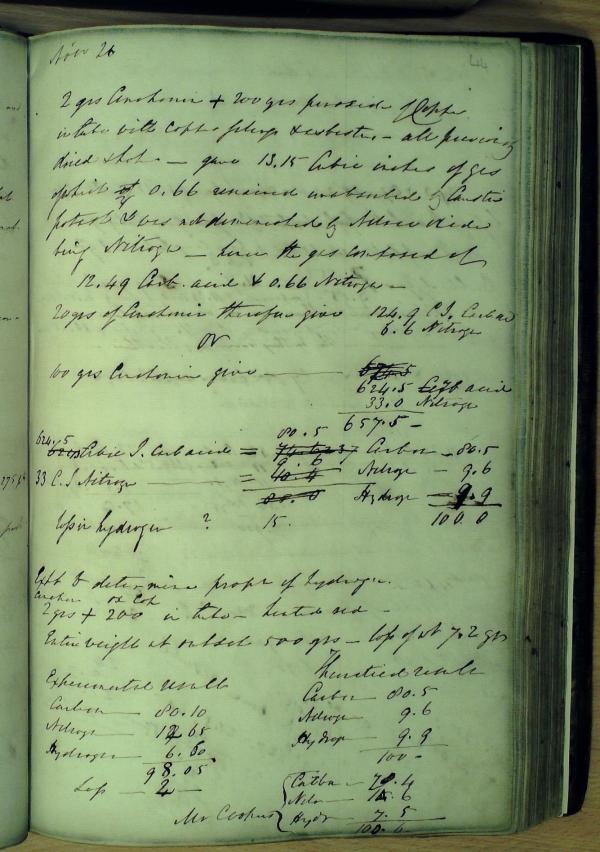 Novr 26
44
2 grs Cinchonin + 200 grs peroxide of Copper
in tube with copper filings & asbestos - all previously
dried & hot - gave 13.15 Cubic inches of gas
of which 0.66 remained unabsorbed by Caustic
potash & was not diminished by Nitrous Oxide
being Nitrogen - hence the gas composed of
12.49 Carb. acid & 0.66 Nitrogen -
20 grs of Cinchonin therefore give 124.9 C I. Carb ac
6.6 Nitrogen
or
100 grs Cinchonin give
624.5 Carb acid
33.0 Nitrogen
657.5 -
80.5
624.5 Cubic I. Carb acid = Carbon - 80.5
9.6
33 C. I Nitrogen = Nitrogen - 9.6
Hydrogen - 9.9
loss in hydrogen ? 15. 100.0
Expt to determine propn of hydrogen.
Cinchon ox Cop
2 grs + 200 in tube - heated red -
Entire weight at outset 500 grs - loss of wt 7.2 grs
Experimental result
Carbon - 80.10
Nitrogen - 65
Hydrogen - 6.
98.05
Loss - 2 -
Theoretical result
Carbon - 80.5
Nitrogen 9.6
Hydrogn - 9.9
100 -
Mr Coopers
Carbon - .4
Nitrn - .6
Hydrn - 7.5